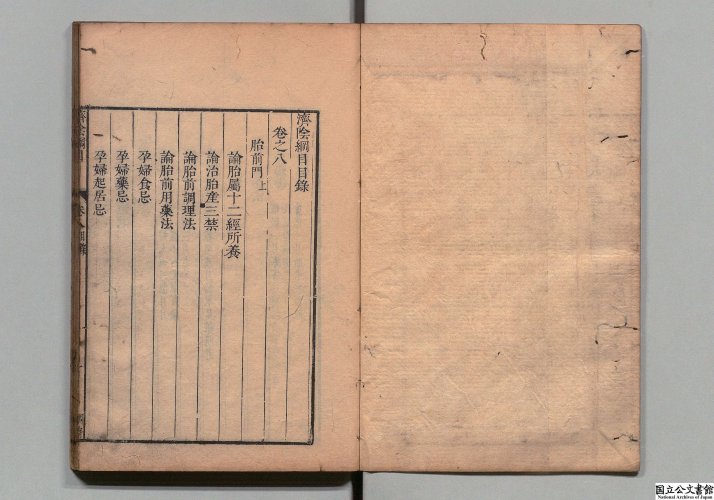 濟陰綱目目錄
卷之八
胎前門上
論胎屬十二經所養
論治胎產三禁
論胎前調理法
論胎前用藥法
孕婦食忌
孕婦藥忌
孕婦起居忌
濟陰綱目
卷八目錄
国立公文書館
National Archives of Japan